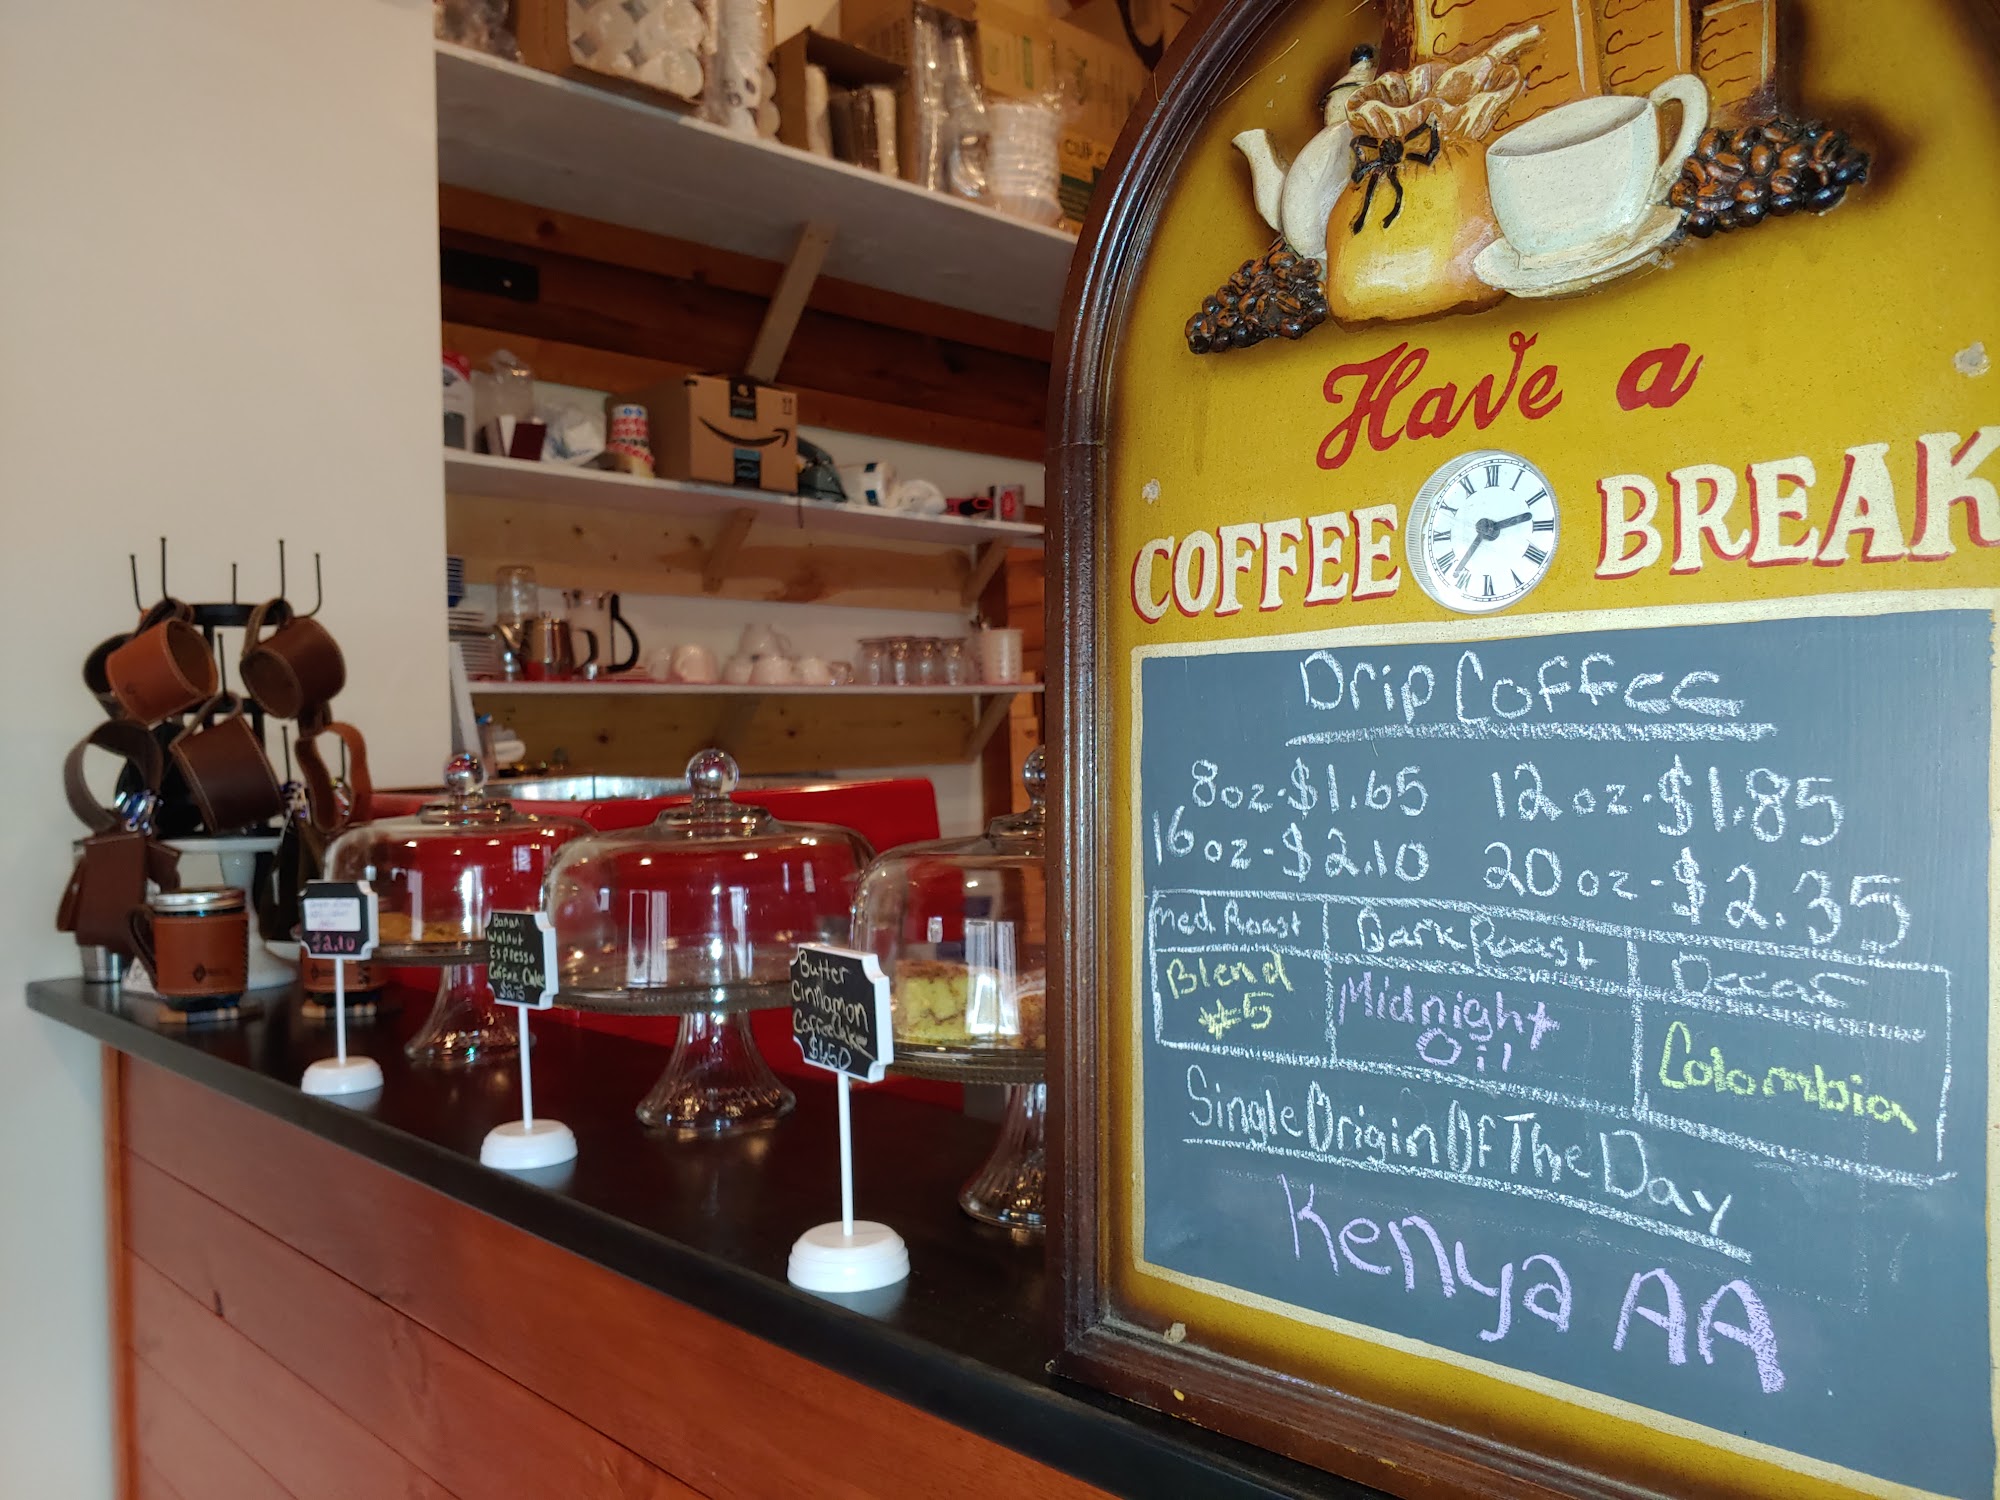 Have a
COFFEE BREAK
Drip Coffee
8oz-$1.65 12oz-$1.85
16oz-$2.10 20oz-$2.35
Med. Roast Dark Roast Decaf
Blend #5 Midnight Oil Colombia
Single Origin Of The Day
Kenya AA
Butter
Cinnamon
Coffee Cake
$1.50
Walnut
Espresso
Coffee Cake
$2.10